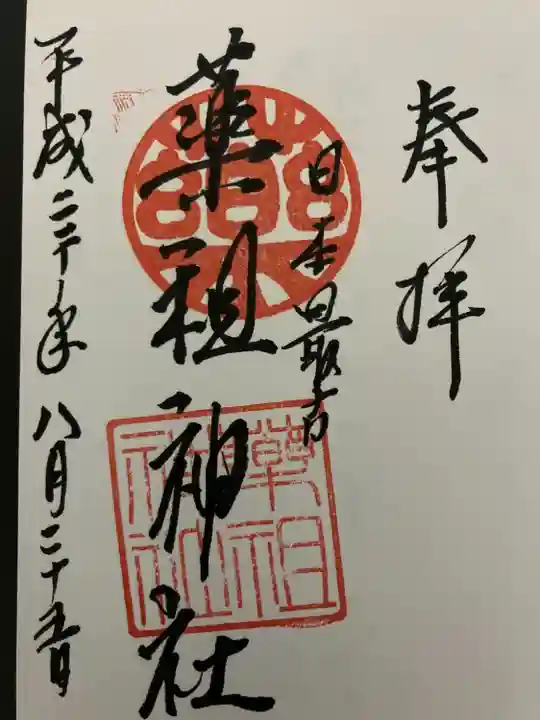 奉拝
日本最古
薬祖神社
薬祖神社
平成二十年八月二十五日